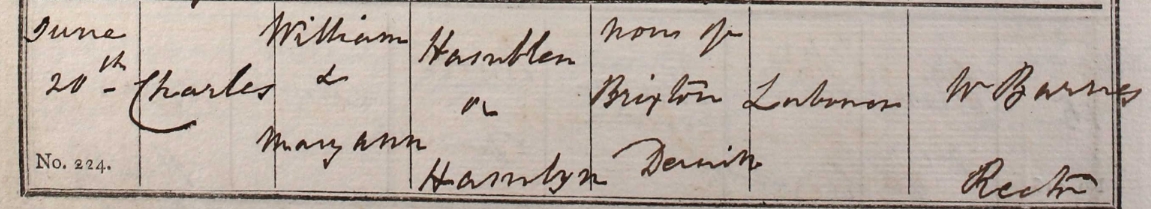 June
20th -
No. 224.
Charles
William
&
Mary ann
Hamblen
or
Hamlyn
now of
Brixton
Laborer
W Barnes
Rector